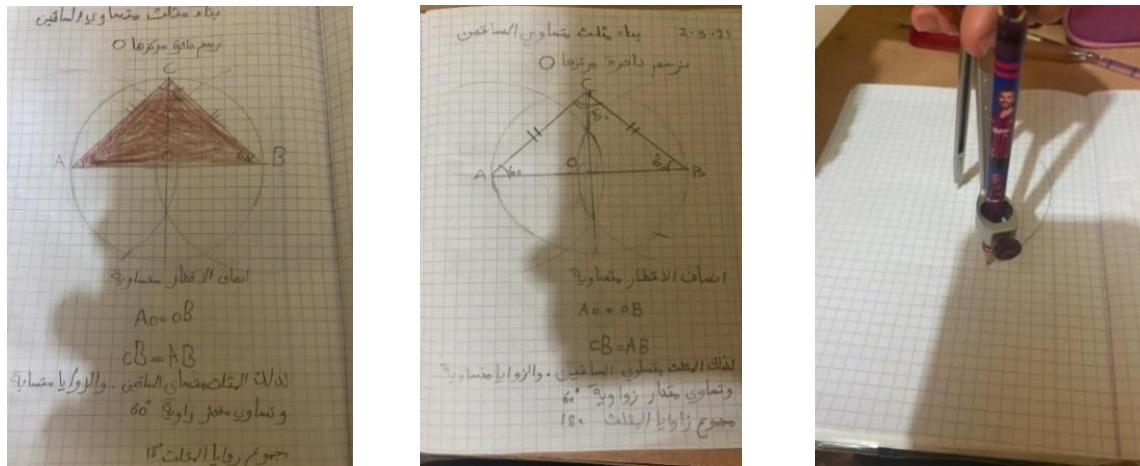 بناء مثلث متساوي الساقين
نرسم دائرة مركزها O
C
A
B
انصاف الاقطار متساوية
AO=OB
CB=AB
لذلك المثلث متساوي الساقين . والزوايا متساية
وتساوي مقدار زاوية 60°
مجموع زوايا المثلث
2.5.21
بناء مثلث متساوي الساقين
نرسم دائرة مركزها O
C
60
A
60
O
60
B
انصاف الاقطار متساوية
AO=OB
CB=AB
لذلك المثلث متساوي الساقين . والزوايا متساوية
وتساوي مقدار زواوية 60°
مجموع زاوايا المثلث 180